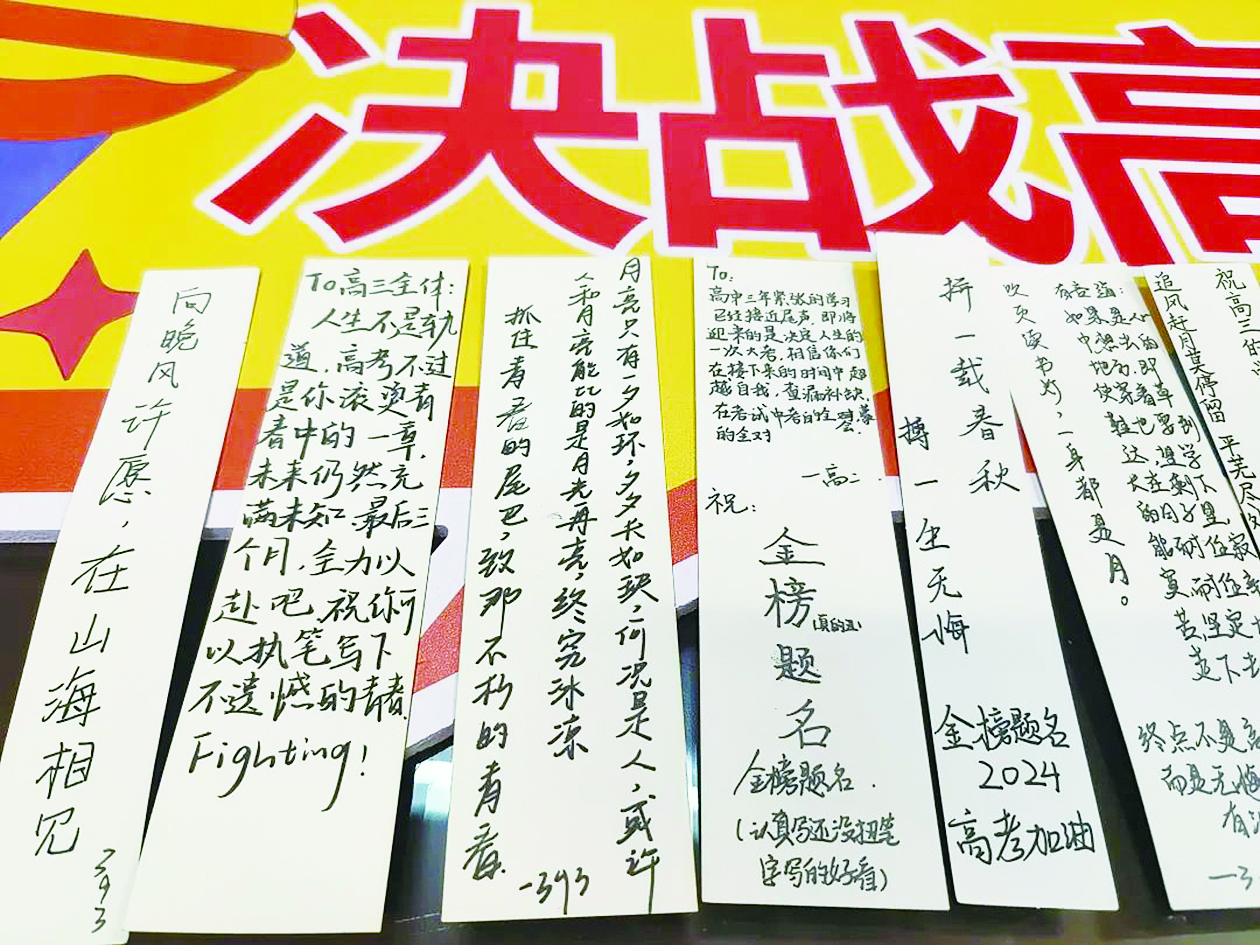 决战高
向晚风许愿，在山海相见
393
To高三全体：
人生不是轨
道，高考不过
是你滚烫青
春中的一章，
未来仍然充
满未知，最后三
个月，全力以
赴吧，祝你可
以执笔写下
不遗憾的青春
Fighting！
月亮只有一夕如环，夕夕长如玦，何况是人，或许
人和月亮能比的是月光再亮，终究冰凉
抓住青春的尾巴，致那不朽的青春
-393
To：
高中三年紧张的学习
已经接近尾声，即将
迎来的是决定人生的
一次大考，相信你们
在接下来的时间中超
越自我，查漏补缺，
在考试中考的全会，蒙
的全对
一高二
祝：
金榜题名
(真的丑)
金榜题名.
(认真写还没扭笔
字写的好看)
拼一载春秋
搏一生无悔
金榜题名
2024
高考加油
吹灭读书灯，一身都是月。
如果是心
中想去的
地方，即
使穿着草
鞋也要到
达，望学
长在剩下
的日子里，
能耐住寂
寞，耐住辛
苦，坚定
走下去
追风赶月莫停留 平芜尽
祝高三的
终点不是高
而是无悔
有
一3